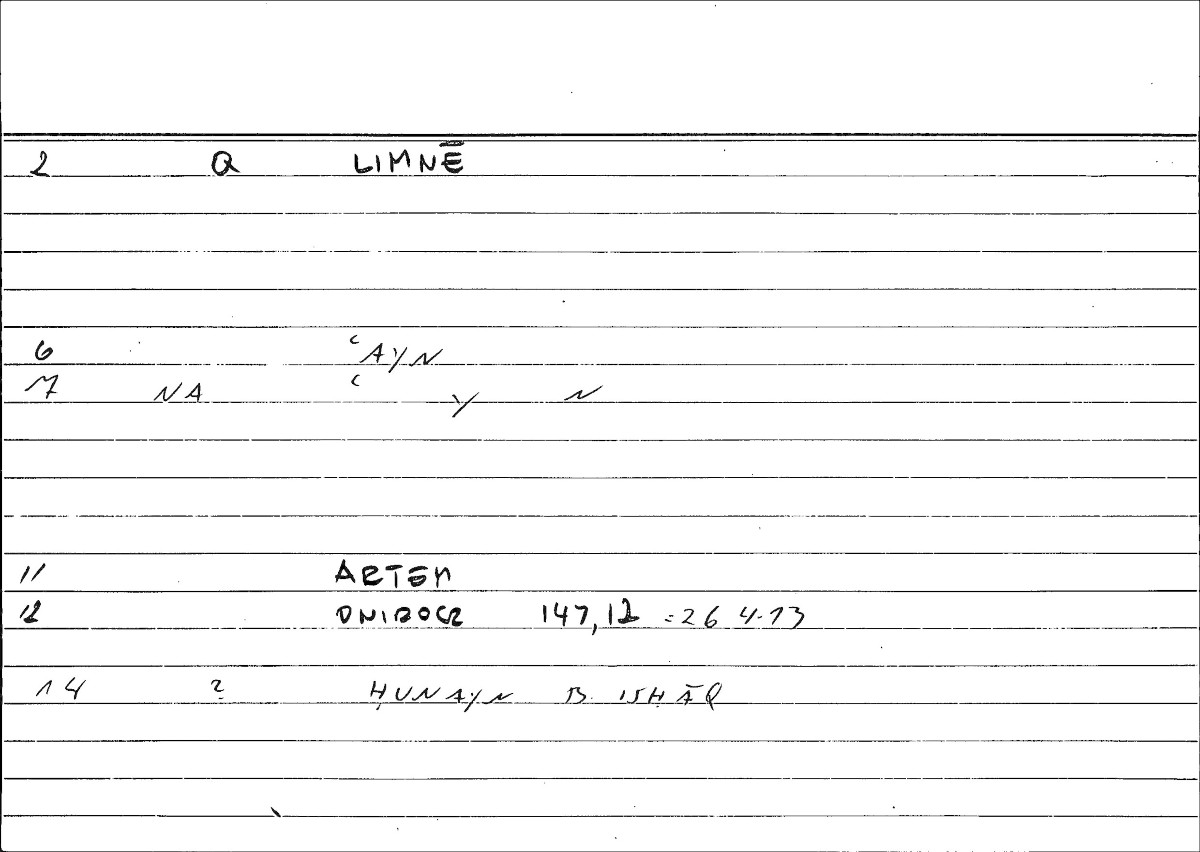 2 Q LIMNĒ
6 ʿAYN
7 NA ʿ Y N
11 ARTEM
12 ONIROCR 147,12 = 26 4-13
14 ? ḤUNAYN B. ISḤĀQ